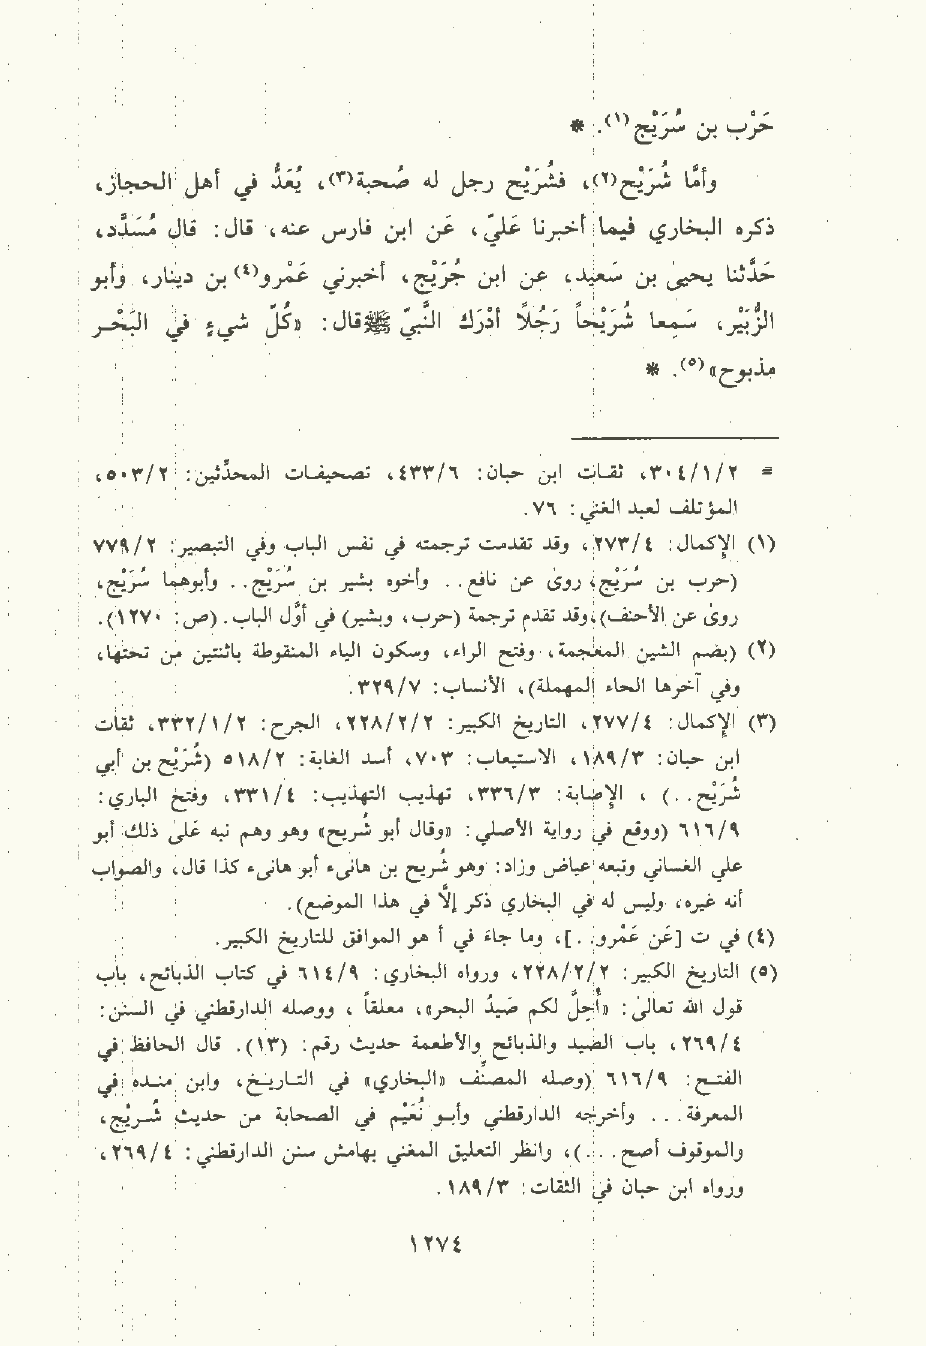 حَرْب بن سُرَيْج(١). *
وأمَّا شُرَيْح(٢)، فشُرَيْح رجل له صُحبة(٣)، يُعَدُّ في أهل الحجاز،
ذكره البخاري فيما أخبرنا عَليّ، عَن ابن فارس عنه، قال: قال مُسَدَّد،
حَدَّثنا يحيىٰ بن سَعيد، عن ابن جُرَيْج، أخبرني عَمْرو(٤) بن دينار، وأبو
الزُّبَيْر، سَمِعا شُرَيْحاً رَجُلاً أدْرَك النَّبيّ ﷺ قال: «كُلّ شيءٍ في البَحْر
مذبوح»(٥). *
= ٣٠٤/١/٢، ثقات ابن حبان: ٤٣٣/٦، تصحيفات المحدِّثين: ٥٠٣/٢،
المؤتلف لعبد الغني: ٧٦.
(١) الإكمال: ٢٧٣/٤، وقد تقدمت ترجمته في نفس الباب وفي التبصير: ٧٧٩/٢
(حرب بن سُرَيْج، روىٰ عن نافع.. وأخوه بشير بن سُرَيْج.. وأبوهما سُرَيْج،
روىٰ عن الأحنف)، وقد تقدم ترجمة (حرب، وبشير) في أوَّل الباب. (ص: ١٢٧٠).
(٢) (بضم الشين المعجمة، وفتح الراء، وسكون الياء المنقوطة باثنتين من تحتها،
وفي آخرها الحاء المهملة)، الأنساب: ٣٢٩/٧.
(٣) الإكمال: ٢٧٧/٤، التاريخ الكبير: ٢٢٨/٢/٢، الجرح: ٣٣٢/١/٢، ثقات
ابن حبان: ١٨٩/٣، الاستيعاب: ٧٠٣، أسد الغابة: ٥١٨/٢ (شُرَيْح بن أبي
شُرَيْح..) ، الإصابة: ٣٣٦/٣، تهذيب التهذيب: ٣٣١/٤، وفتح الباري:
٦١٦/٩ (ووقع في رواية الأصلي: «وقال أبو شُريح» وهو وهم نبه عَلى ذلك أبو
علي الغساني وتبعه عياض وزاد: وهو شُريح بن هانىء أبو هانىء كذا قال، والصواب
أنه غيره، وليس له في البخاري ذكر إلَّا في هذا الموضع).
(٤) في ت [عَن عَمْرو..]، وما جاءَ في أ هو الموافق للتاريخ الكبير.
(٥) التاريخ الكبير: ٢٢٨/٢/٢، ورواه البخاري: ٦١٤/٩ في كتاب الذبائح، باب
قول الله تعالىٰ: «أُحِلَّ لكم صَيدُ البحر»، معلقاً ، ووصله الدارقطني في السنن:
٢٦٩/٤، باب الصيد والذبائح والأطعمة حديث رقم: (١٣). قال الحافظ في
الفتح: ٦١٦/٩ (وصله المصنِّف «البخاري» في التاريخ، وابن منده في
المعرفة... وأخرجه الدارقطني وأبو نُعَيْم في الصحابة من حديث شُريْح،
والموقوف أصح...)، وانظر التعليق المغني بهامش سنن الدارقطني: ٢٦٩/٤،
ورواه ابن حبان في الثقات: ١٨٩/٣.
١٢٧٤